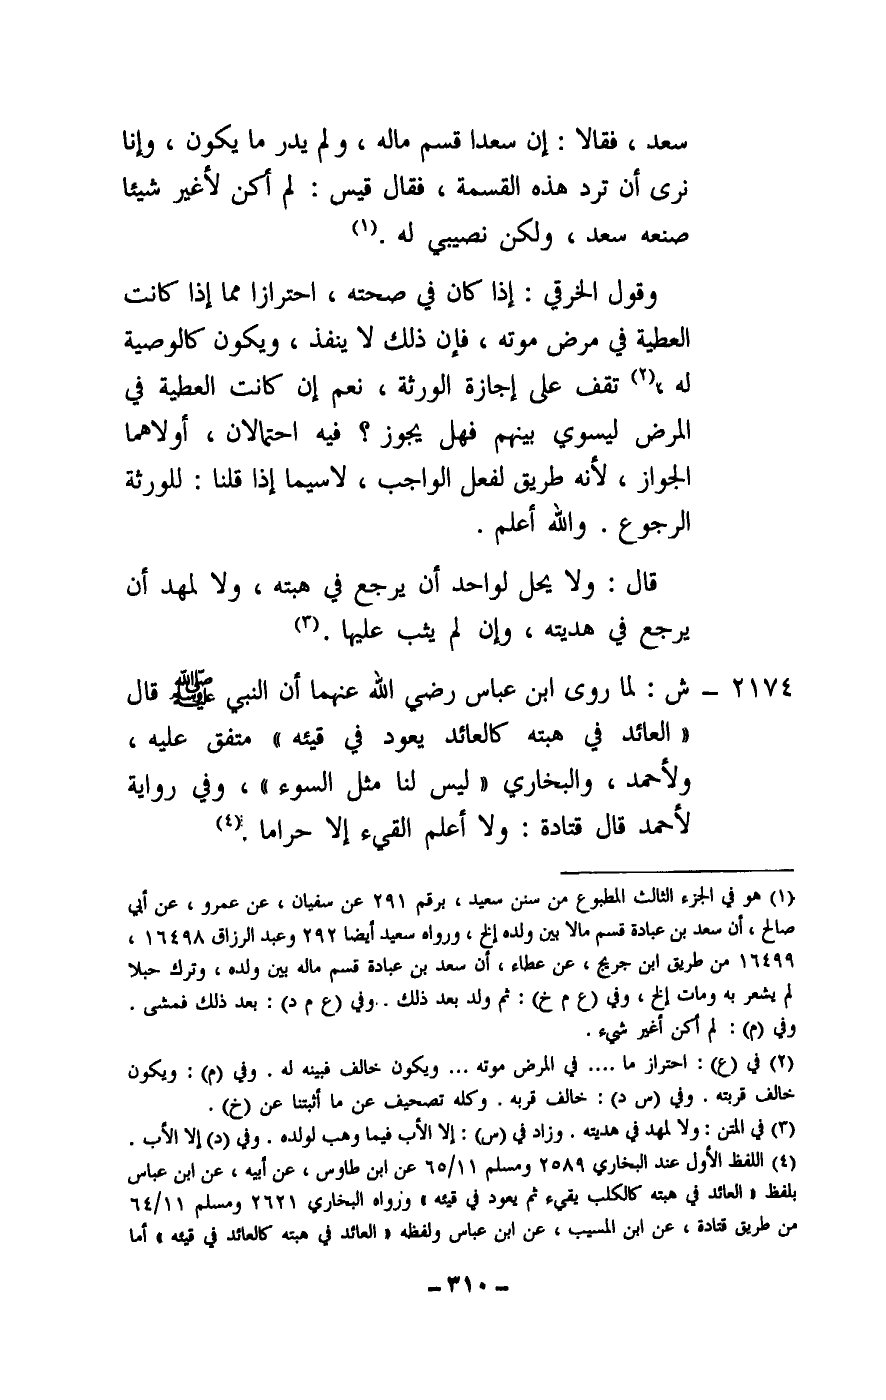 سعد ، فقالا : إن سعدا قسم ماله ، ولم يدر ما يكون ، وإنا
نرى أن ترد هذه القسمة ، فقال قيس : لم أكن لأغير شيئا
صنعه سعد ، ولكن نصيبي له .(١)
وقول الخرقي : إذا كان في صحته ، احترازا مما إذا كانت
العطية في مرض موته ، فإن ذلك لا ينفذ ، ويكون كالوصية
له ،(٢) تقف على إجازة الورثة ، نعم إن كانت العطية في
المرض ليسوي بينهم فهل يجوز ؟ فيه احتمالان ، أولاهما
الجواز ، لأنه طريق لفعل الواجب ، لاسيما إذا قلنا : للورثة
الرجوع . والله أعلم .
قال : ولا يحل لواحد أن يرجع في هبته ، ولا لمهد أن
يرجع في هديته ، وإن لم يثب عليها .(٣)
٢١٧٤ – ش : لما روى ابن عباس رضي الله عنهما أن النبي ﷺ قال
« العائد في هبته كالعائد يعود في قيئه » متفق عليه ،
ولأحمد ، والبخاري « ليس لنا مثل السوء » ، وفي رواية
لأحمد قال قتادة : ولا أعلم القيء إلا حراما .(٤)
(١) هو في الجزء الثالث المطبوع من سنن سعيد ، برقم ٢٩١ عن سفيان ، عن عمرو ، عن أبي
صالح ، أن سعد بن عبادة قسم مالا بين ولده إلخ ، ورواه سعيد أيضا ٢٩٢ وعبد الرزاق ١٦٤٩٨ ،
١٦٤٩٩ من طريق ابن جريج ، عن عطاء ، أن سعد بن عبادة قسم ماله بين ولده ، وترك حبلا
لم يشعر به ومات إلخ ، وفي (ع م خ) : ثم ولد بعد ذلك . .وفي (ع م د) : بعد ذلك فمشى .
وفي (م) : لم أكن أغير شيء .
(٢) في (ع) : احتراز ما .... في المرض موته ... ويكون خالف فبينه له . وفي (م) : ويكون
خالف قربته . وفي (س د) : خالف قربه . وكله تصحيف عن ما أثبتنا عن (خ) .
(٣) في المتن : ولا لمهد في هديته . وزاد في (س) : إلا الأب فيما وهب لولده . وفي (د) إلا الأب .
(٤) اللفظ الأول عند البخاري ٢٥٨٩ ومسلم ٦٥/١١ عن ابن طاوس ، عن أبيه ، عن ابن عباس
بلفظ « العائد في هبته كالكلب يقيء ثم يعود في قيئه » ورواه البخاري ٢٦٢١ ومسلم ٦٤/١١
من طريق قتادة ، عن ابن المسيب ، عن ابن عباس ولفظه « العائد في هبته كالعائد في قيئه » أما
– ٣١٠ –